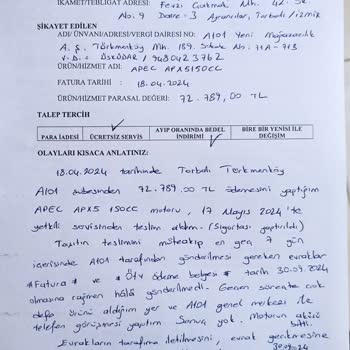 İKAMET/TEBLİGAT ADRESİ: Fevzi Çakmak Mh. 42. Sk.
No: 9 Daire = 3 Ayrancılar, Torbalı / İzmir
ŞİKAYET EDİLEN
ADI/ ÜNVANI/ADRESİ/VERGİ DAİRESİ NO: A101 Yeni Mağazacılık
A. Ş. Türkmenköy Mh. 159. Sokak No: 71A - 71B
V. D. = ÜSKÜDAR / 9480423762
ÜRÜN/HİZMET ADI: APEC APX5150CC
FATURA TARİHİ : 18.04.2024
ÜRÜN/HİZMET PARASAL DEĞERİ: 72.789,00 TL
TALEP TERCİH
PARA İADESİ ÜCRETSİZ SERVİS AYIP ORANINDA BEDEL İNDİRİMİ BİRE BİR YENİSİ İLE DEĞİŞİM
OLAYLARI KISACA ANLATINIZ:
18.04.2024 tarihinde Torbalı Türkmenköy
A101 şubesinden 72.789.00 TL ödemesini yaptığım
APEC APX5 150CC motoru, 17 Mayıs 2024'te
yetkili servisinden teslim aldım. (Sigortası yaptırıldı)
Taşıtın teslimini müteakip en geç 7 gün
içerisinde A101 tarafından gönderilmesi gereken evraklar
*Fatura* ve *Ötv ödeme belgesi* tarih 30.09.2024
olmasına rağmen hâlâ gönderilmedi. Gelen süreçte çok
defa ürünü aldığım yer ve A101 genel merkezi ile
telefon görüşmesi yaptım Sonuç yok. Motorun aküsü bitti.
Evrakların tarafıma iletilmesini, evrak gecikmesine
30.09.2024